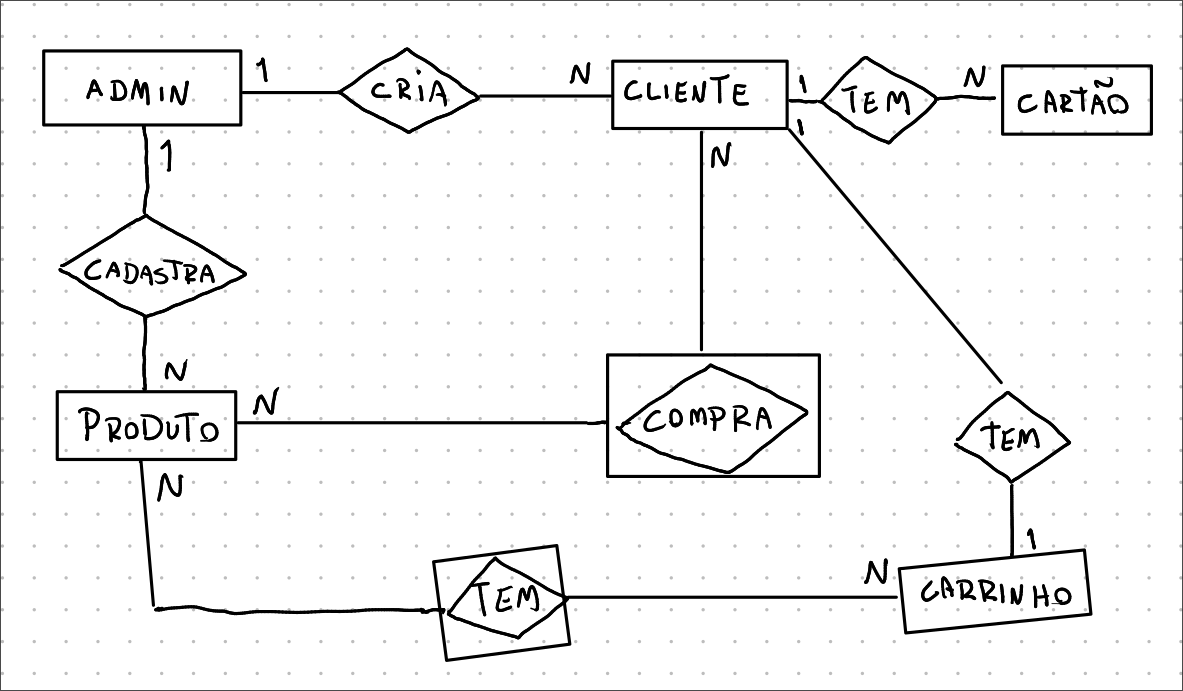 ADMIN
1
CRIA
N
CLIENTE
1
TEM
N
CARTÃO
1
1
N
CADASTRA
N
PRODUTO
N
COMPRA
TEM
N
1
TEM
N
CARRINHO